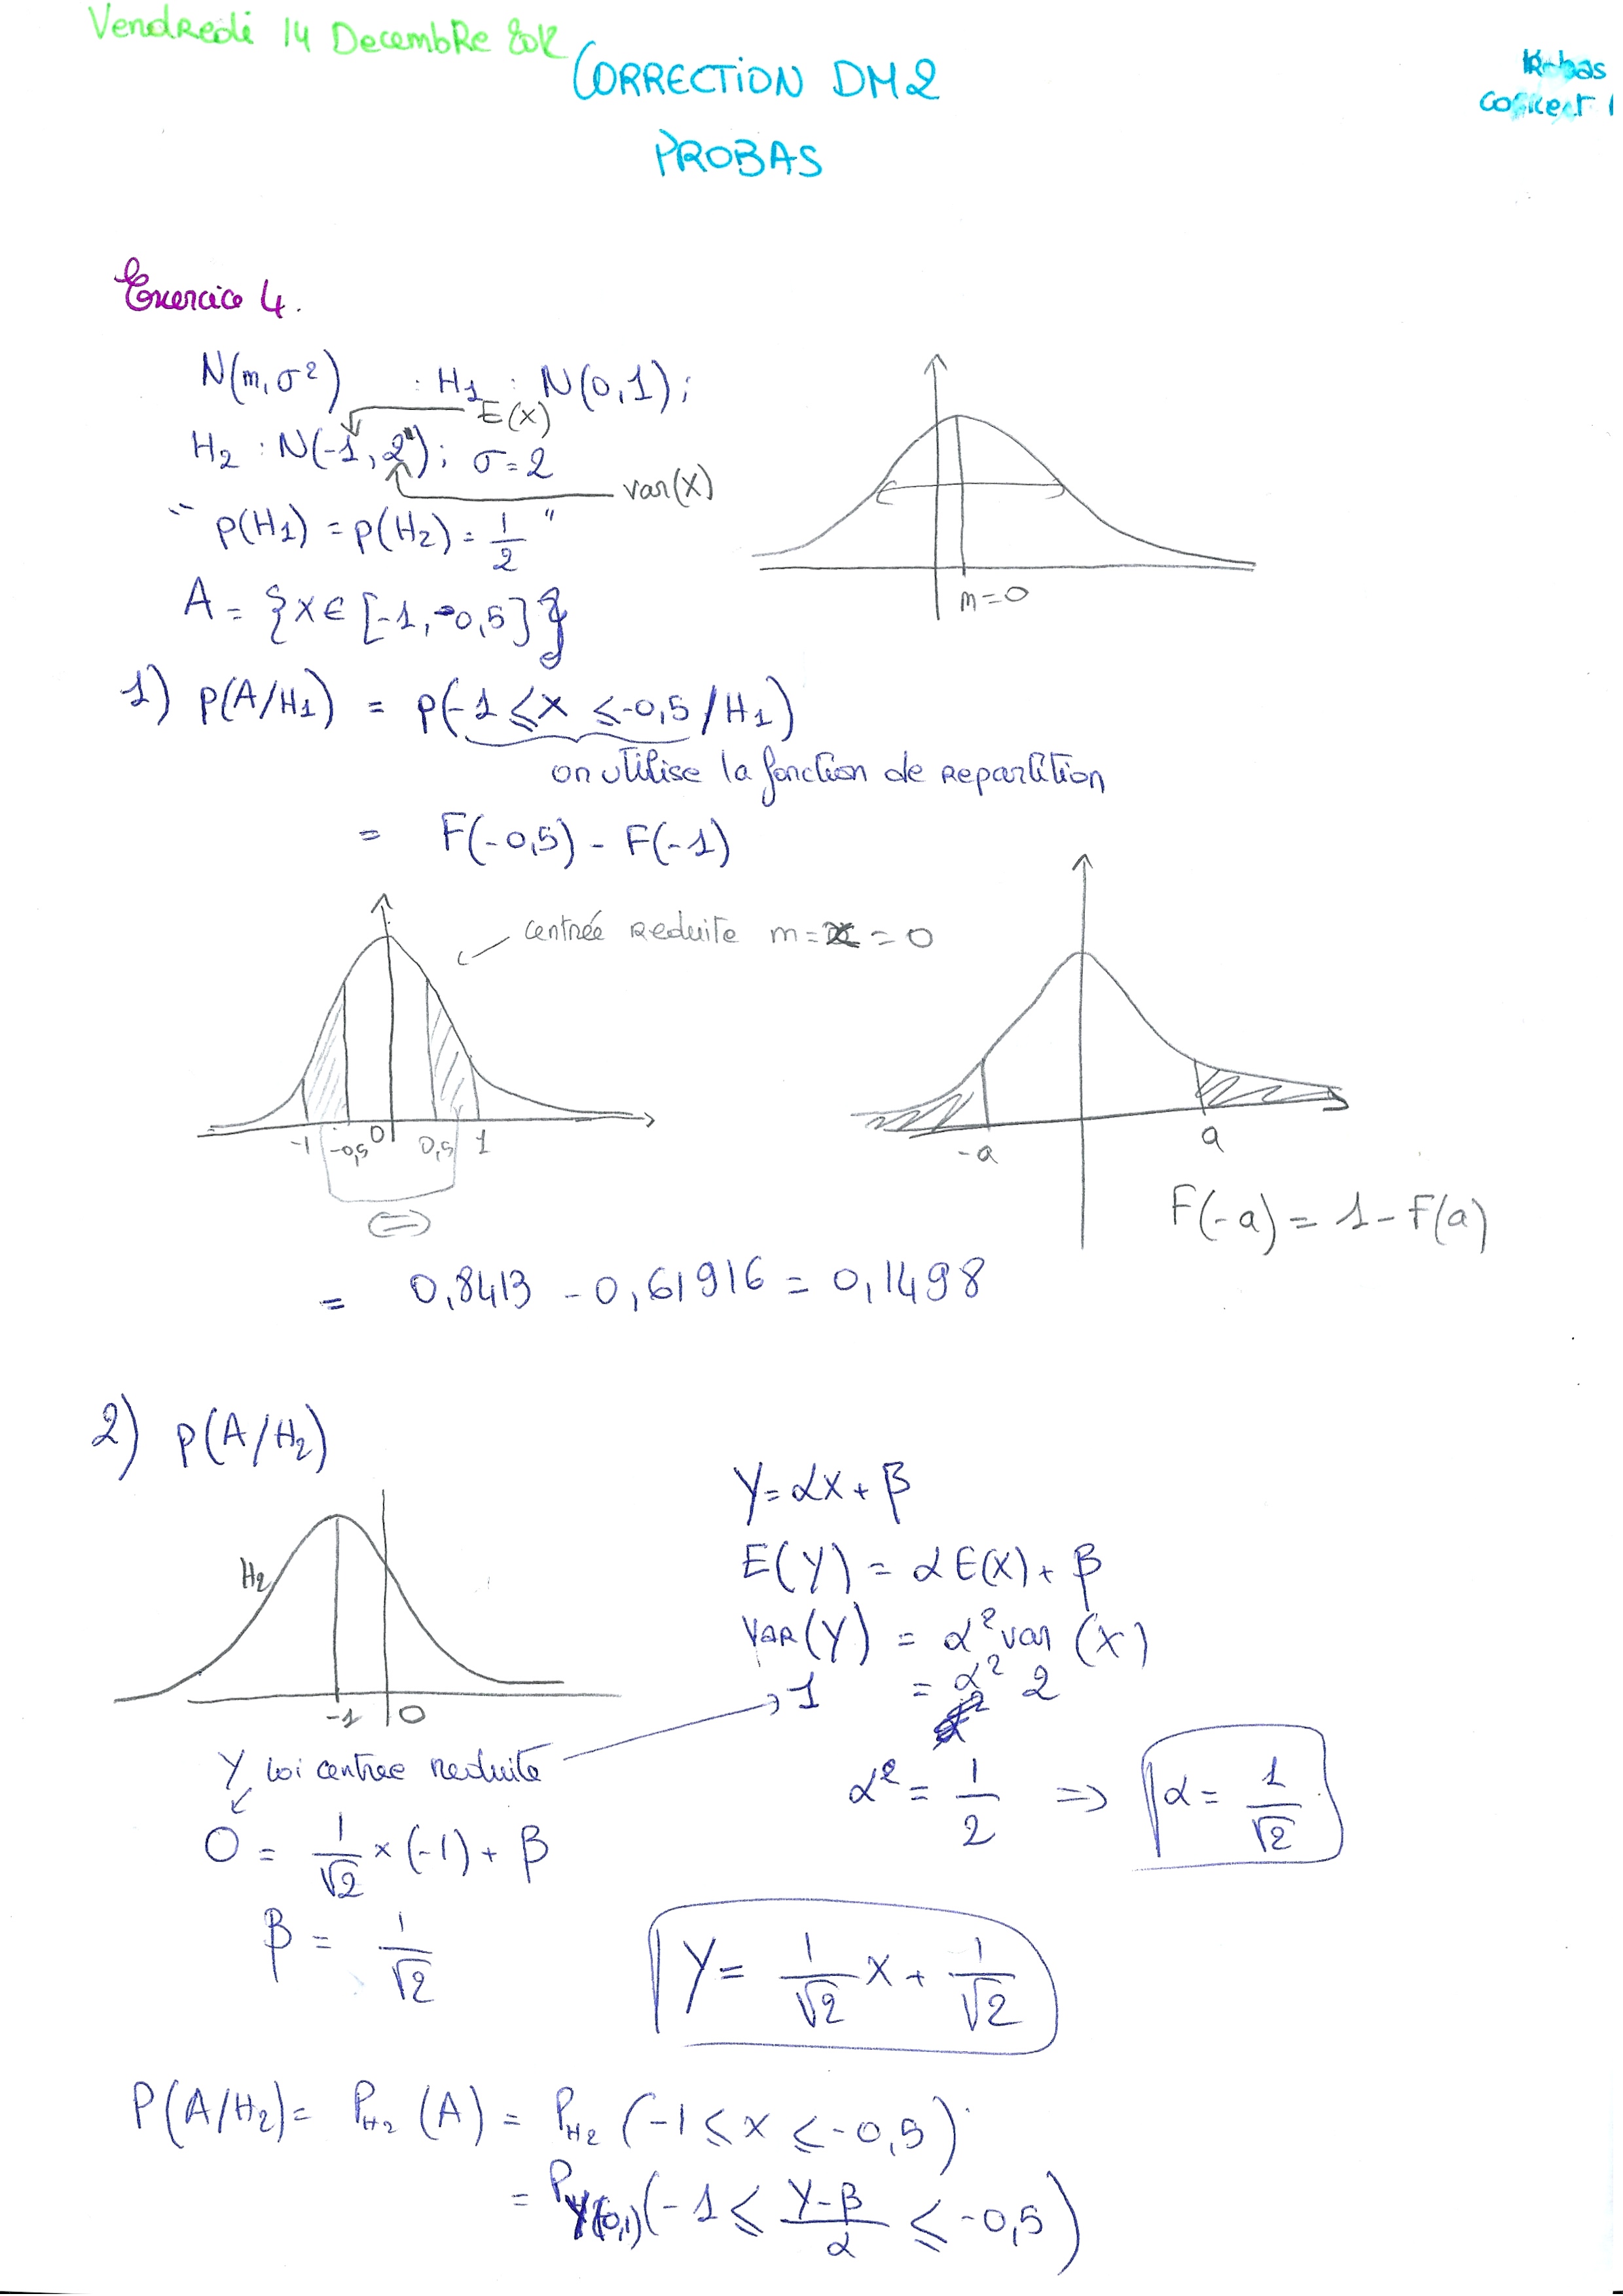 Vendredi 14 Decembre 2012
CORRECTION DM2
PROBAS
Exercice 4.
N(m,σ²) : H1 : N(0,1);
E(x)
H2 : N(-1, 2); σ=2
var(x)
" p(H1) = p(H2) = 1/2 "
A = {x ∈ [-1,-0,5]}
m=0
1) p(A/H1) = p(-1 ≤ x ≤ -0,5 / H1)
on utilise la fonction de repartition
= F(-0,5) - F(-1)
centrée reduite m= = 0
-1 -0,5 0 0,5 1
(=)
-a a
F(-a) = 1 - F(a)
= 0,8413 - 0,61916 = 0,1498
2) p(A/H2)
H2
-1 0
Y = αX + β
E(Y) = αE(X) + β
VAR(Y) = α² var (X)
1 = α² 2
α² = 1/2 => α = 1/√2
Y loi centree reduite
0 = 1/√2 × (-1) + β
β = 1/√2
Y = 1/√2 X + 1/√2
P(A/H2) = PH2 (A) = PH2 (-1 ≤ x ≤ -0,5)
= PY(0,1)(-1 ≤ (Y-β)/α ≤ -0,5)